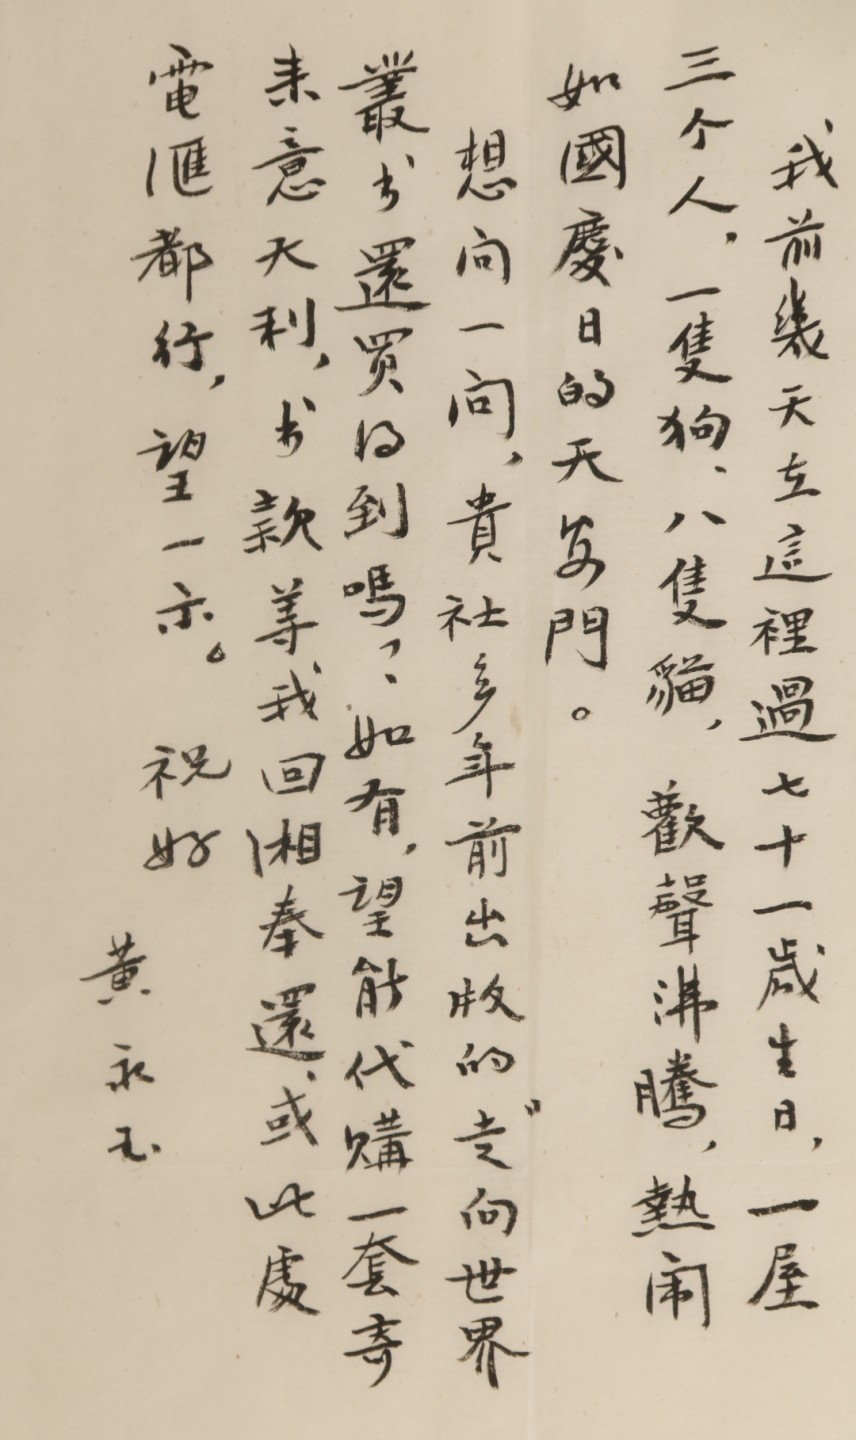 我前幾天在這裡過七十一歲生日，一屋
三个人，一隻狗、八隻貓，歡聲沸騰，熱闹
如國慶日的天安門。
想问一问，貴社多年前出版的“走向世界
叢书還買得到嗎？如有，望能代購一套寄
来意大利，书款等我回湘奉還、或此處
電滙都行，望一示。 祝好
黄永玉